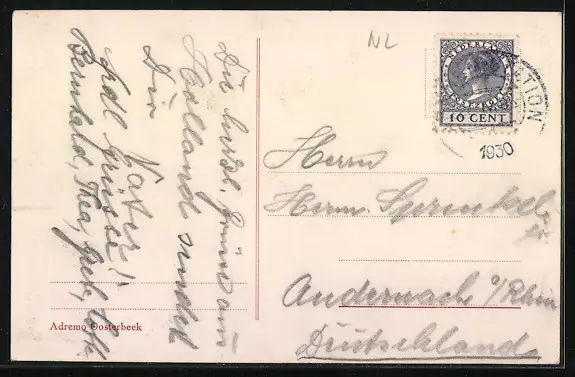 Die herzl. Grüße aus
Holland sendet
Dir
Vater
Viele Grüsse!
Bernhard, Thea,
Adremo Oosterbeek
NL
NEDERLAND
10 CENT
TION
1930
Herrn
Herm. Sprenkel
Andernach a/Rhein
Deutschland